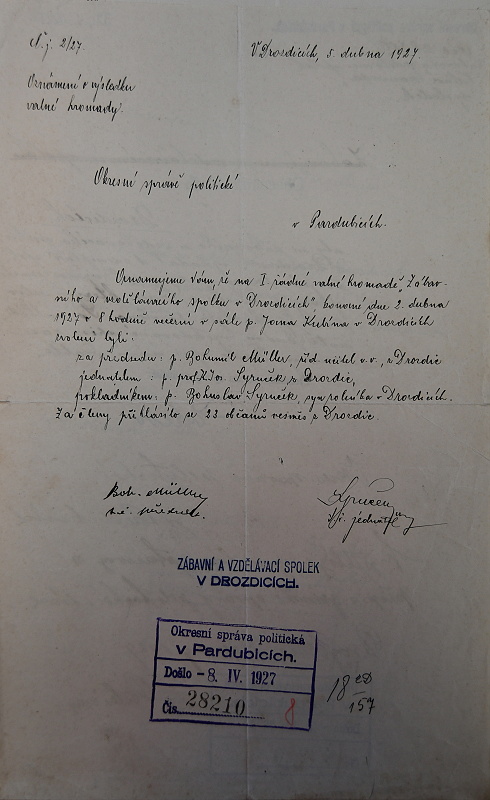 N. j. 2/27.
V Drozdicích, 5. dubna 1927.
Oznámení o výsledku
valné hromady.
Okresní správě politické
v Pardubicích.
Oznamujeme Vám, že na I. řádné valné hromadě „Zábav-
ního a vzdělávacího spolku v Drozdicích", konané dne 2. dubna
1927 o 8 hodině večerní v sále p. Jana Kubína v Drozdicích
zvoleni byli:
za předsedu: p. Bohumil Müller, říd. učitel v. v., z Drozdic
jednatelem: p. Jos. Syruček z Drozdic,
pokladníkem: p. Bohuslav Syruček, syn rolníka v Drozdicích.
Za členy přihlásilo se 23 občanů vesměs z Drozdic.
Boh. Müller
Syruček
jednatel
ZÁBAVNÍ A VZDĚLÁVACÍ SPOLEK
V DROZDICÍCH.
Okresní správa politická
v Pardubicích.
Došlo - 8. IV. 1927
Čís. 28210 8
18
157